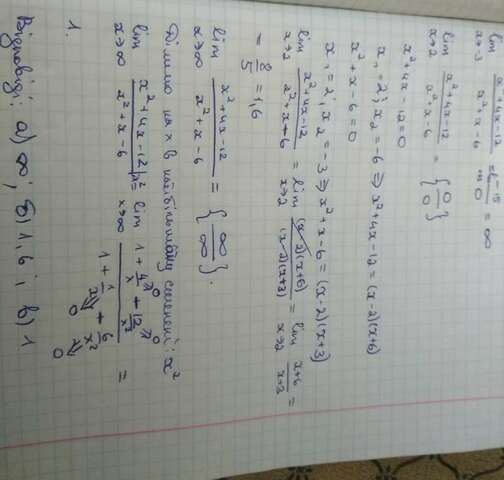 lim x→-3 x²+4x-12 / x²+x-6 = {-15 / 0} = ∞
lim x→2 x²+4x-12 / x²+x-6 = {0/0}
x²+4x-12=0
x₁=2; x₂=-6 ⇒ x²+4x-12=(x-2)(x+6)
x²+x-6=0
x₁=2; x₂=-3 ⇒ x²+x-6=(x-2)(x+3)
lim x→2 x²+4x-12 / x²+x-6 = lim x→2 (x-2)(x+6) / (x-2)(x+3) = lim x→2 x+6 / x+3 =
= 8/5 = 1,6
lim x→∞ x²+4x-12 / x²+x-6 = {∞/∞}.
Ділимо на x в найбільшому степені: x²
lim x→∞ x²+4x-12 |x² / x²+x-6 = lim x→∞ 1+4/x→0 + 12/x²→0 / 1+1/x→0 + 6/x²→0 =
1.
Відповіді: а) ∞; б) 1,6; в) 1